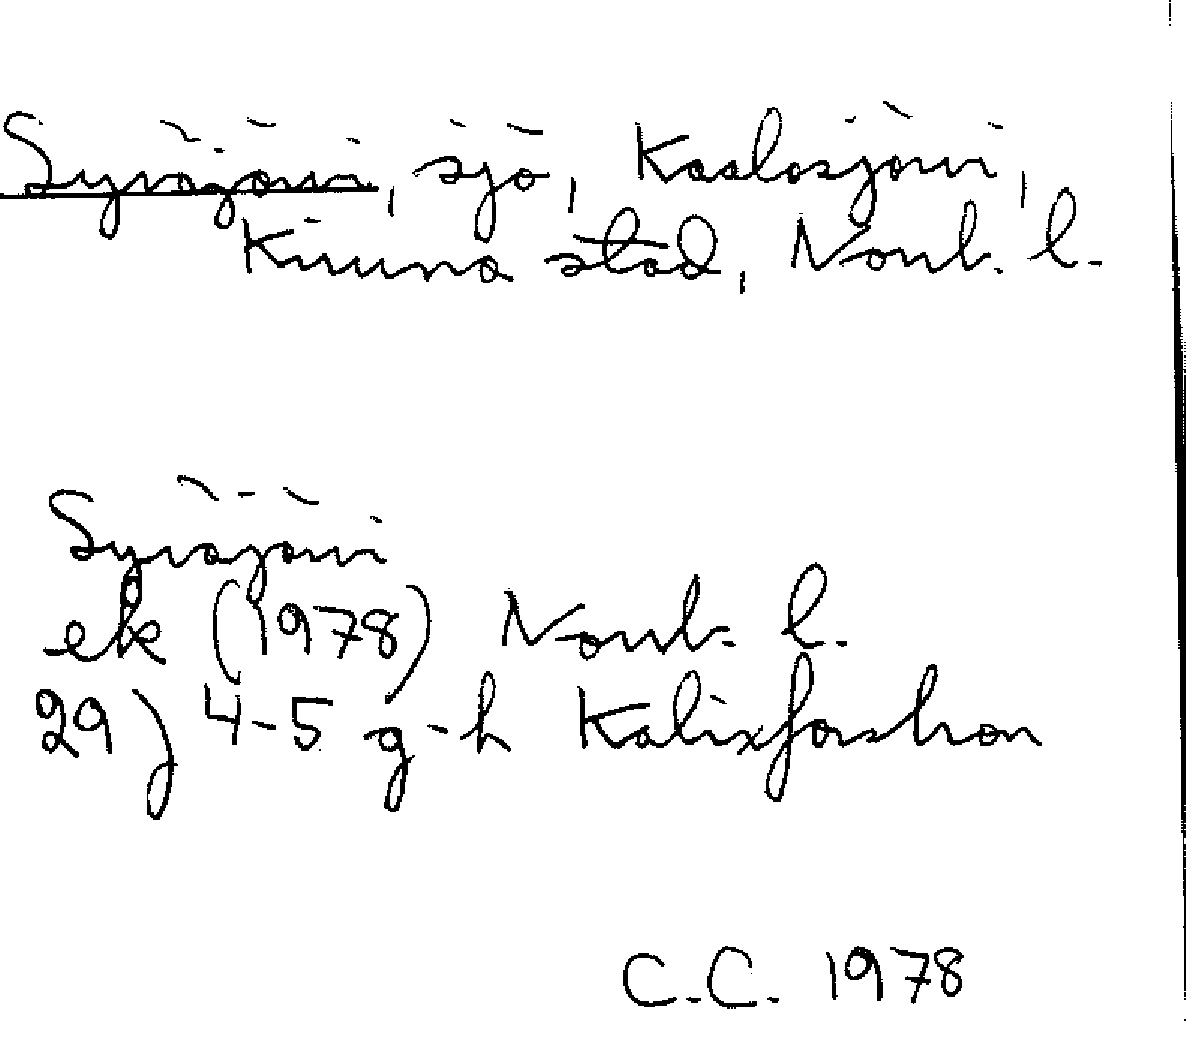 Syväjärvi, sjö, Kaalasjärvi,
Kiruna stad, Norrb. l.
Syväjärvi
ek (1978) Norrb. l.
29 J 4-5 g-h Kalixforsbron
C.C. 1978